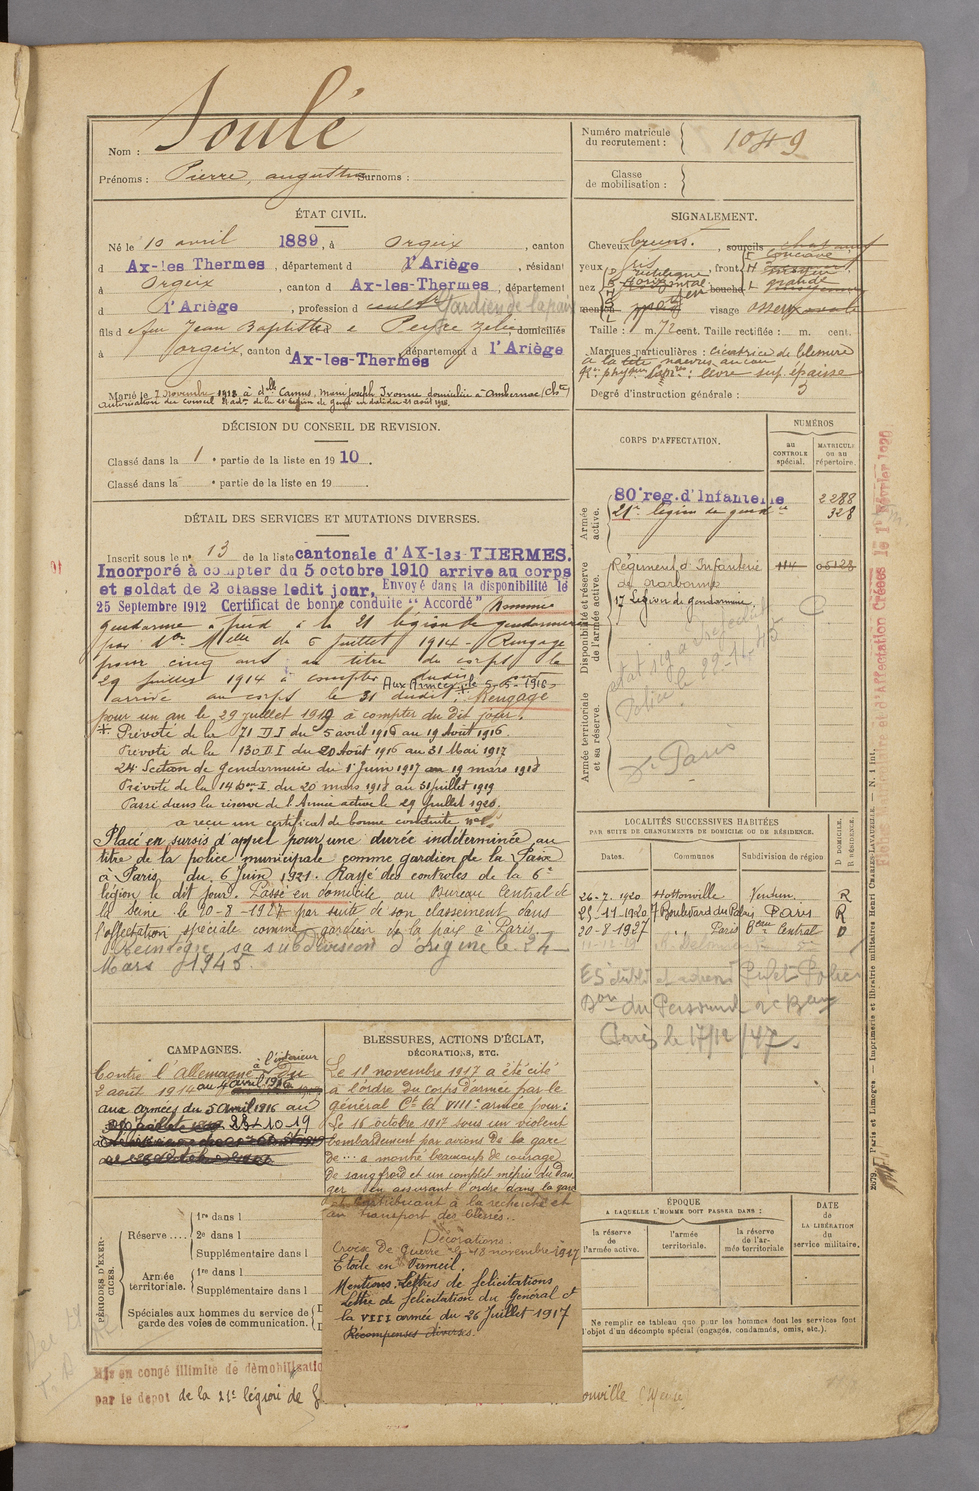 Nom : Soulé
Prénoms : Pierre, augustin Surnoms :
Numéro matricule du recrutement : 1049
Classe de mobilisation :
ÉTAT CIVIL.
Né le 10 avril 1889, à Orgeix, canton
d Ax-les Thermes, département d l'Ariège, résidant
à Orgeix, canton d Ax-les-Thermes, département
d l'Ariège, profession d Gardien de la paix
fils d feu Jean Baptiste e Zélie, domiciliés
à Orgeix, canton d Ax-les-Thermes département d l'Ariège
Marié le 7 Novembre 1918 à dlle Camus, Marie Joseph Yvonne domiciliée à Ambernac (Chte)
Autorisation du conseil d'adm. de la 21e légion de gend. en date du 21 août 1918.
SIGNALEMENT.
Cheveux bruns. , sourcils
yeux gris , front
nez rectiligne , bouche grande
menton visage osseux
Taille : 1 m. 72 cent. Taille rectifiée : m. cent.
Marques particulières : cicatrice de blessure
à la tête
lèvre sup. épaisse
Degré d'instruction générale : 3
DÉCISION DU CONSEIL DE REVISION.
Classé dans la 1e partie de la liste en 1910.
Classé dans la e partie de la liste en 19 .
DÉTAIL DES SERVICES ET MUTATIONS DIVERSES.
Inscrit sous le n° 13 de la liste cantonale d'AX-les-THERMES.
Incorporé à compter du 5 octobre 1910 arrivé au corps
et soldat de 2 classe ledit jour. Envoyé dans la disponibilité le
25 Septembre 1912 Certificat de bonne conduite "Accordé" Nommé
gendarme à pied à la 21 légion de gendarmerie
par don Melle du 5 juillet 1914 - Rengagé
pour cinq ans au titre du corps le
29 juillet 1914 à compter dudit jour
arrivé au corps le 31 dudit. Aux Armées le 5-5-1916 Rengagé
pour un an le 29 juillet 1919 à compter du dit jour.
* Prévoté de la 71 D I du 5 avril 1916 au 19 Août 1916.
Prévoté de la 130 D I du 20 Août 1916 au 31 Mai 1917
24e Section de Gendarmerie du 1er Juin 1917 au 19 mars 1918
Prévoté de la 14e D. I. du 20 mars 1918 au 31 juillet 1919
Passé dans la réserve de l'Armée active le 29 Juillet 1920.
a reçu un certificat de bonne conduite
Placé en sursis d'appel pour une durée indéterminée au
titre de la police municipale comme gardien de la Paix
à Paris du 6 Juin 1921. Rayé des contrôles de la 6e
légion le dit jour. Passé en domicile au Bureau Central de
la Seine le 20-8-1927 par suite de son classement dans
l'affectation spéciale comme gardien de la paix à Paris.
Réintègre sa subdivision d'origine le 24
Mars 1945.
CORPS D'AFFECTATION.
NUMÉROS
au CONTROLE spécial.
MATRICULE ou au répertoire.
Armée active.
80e reg. d'Infanterie 2288
21e légion de gendie 328
Disponibilité et réserve de l'armée active.
Régiment d'Infanterie 114 06128
de Narbonne
17 Légion de gendarmerie
Armée territoriale et sa réserve.
Police le 22-11-45
Paris
LOCALITÉS SUCCESSIVES HABITÉES
PAR SUITE DE CHANGEMENTS DE DOMICILE OU DE RÉSIDENCE.
Dates. Communes Subdivision de région D DOMICILE. R RÉSIDENCE.
26-7-1920 Hattonville Verdun R
25-11-1920 7 Boulevard du Palais Paris R
20-8-1927 " Paris Beau Central D
Préfet Police
Don du Personnel 2e Beau
Paris le 17/12/47.
CAMPAGNES.
Contre l'Allemagne à l'intérieur du
2 août 1914 au 4 avril 1916
aux armées du 5 avril 1916 au
23-10-19
BLESSURES, ACTIONS D'ÉCLAT,
DÉCORATIONS, ETC.
Le 11 novembre 1917 a été cité
à l'ordre du corps d'armée par le
général Ct la VIIIe armée pour :
Le 16 octobre 1917 sous un violent
bombardement par avions de la gare
de... a montré beaucoup de courage
de sang froid et un complet mépris du dan-
ger en assurant l'ordre dans la gare
et contribuant à la recherche et
au transport des blessés.
Décorations
Croix de Guerre le 18 novembre 1917
Etoile en Vermeil.
Mentions. Lettres de félicitations
Lettre de félicitation du Général Ct
la VIII armée du 26 Juillet 1917
Récompenses diverses.
PÉRIODES D'EXERCICES.
Réserve.... 1re dans l
2e dans l
Supplémentaire dans l
Armée territoriale. 1re dans l
Supplémentaire dans l
Spéciales aux hommes du service de garde des voies de communication.
ÉPOQUE
A LAQUELLE L'HOMME DOIT PASSER DANS :
la réserve de l'armée active.
l'armée territoriale.
la réserve de l'armée territoriale
DATE de LA LIBÉRATION du service militaire.
Ne remplir ce tableau que pour les hommes dont les services font
l'objet d'un décompte spécial (engagés, condamnés, omis, etc.).
Mis en congé illimité de démobilisatio
par le depot de la 21e légion de G
onville (Meuse)
2679. Paris et Limoges. — Imprimerie et librairie militaires Henri CHARLES-LAVAUZELLE. — N. 1 int.
Fiche et d'Affectation Créées le 1er Février 1920